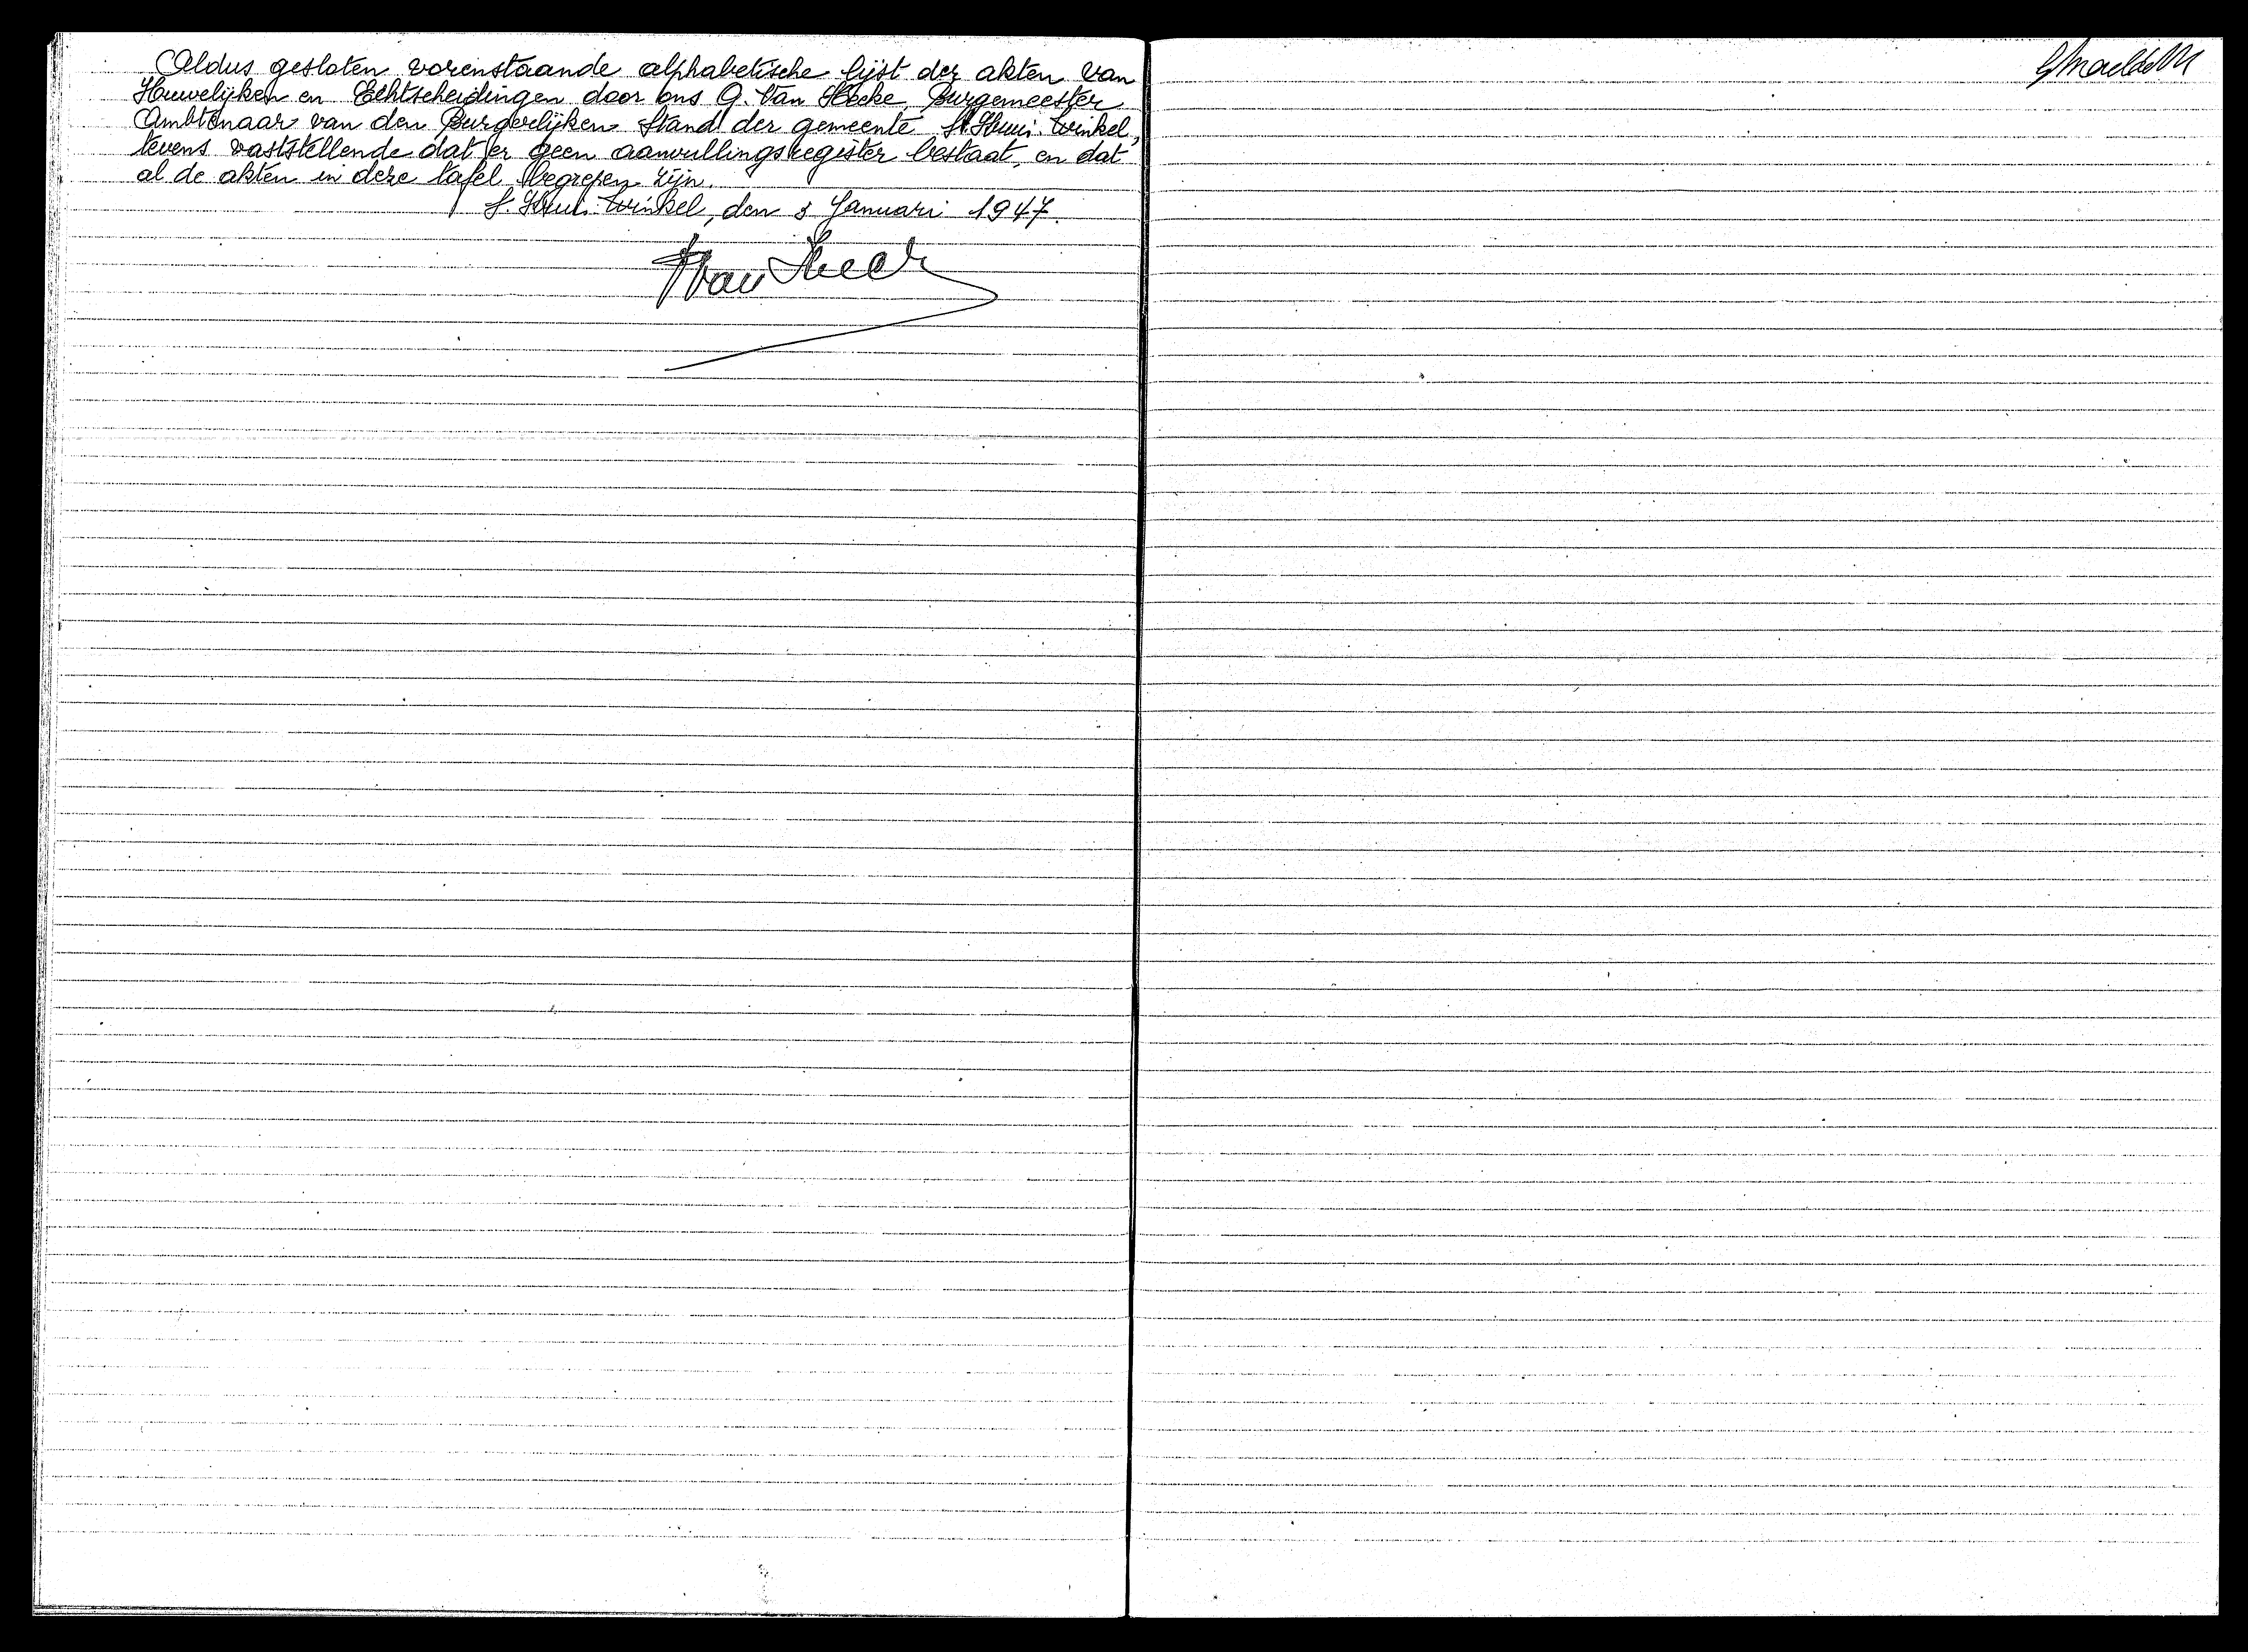 Aldus gesloten vorenstaande alphabetische lijst der akten van
Huwelijken en Echtscheidingen door ons G. Van Hecke, Burgemeester
Ambtenaar van den Burgerlijken Stand der gemeente St. Kruis-Winkel,
tevens vaststellende dat er geen aanvullingsregister bestaat, en dat
al de akten in deze tafel begrepen zijn.
S. Kruis-Winkel, den Januari 1947.